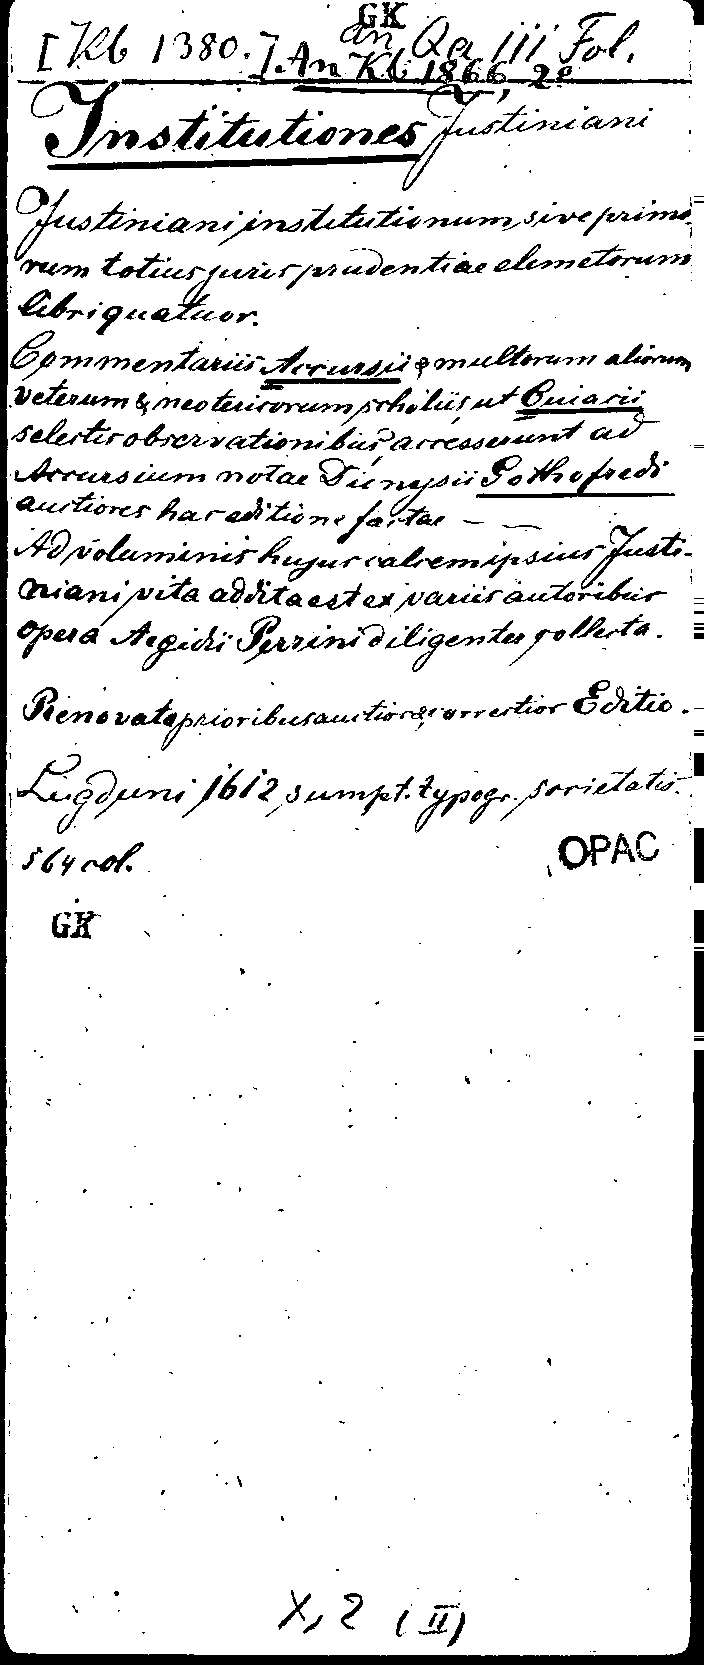 GK
[Kb 1380.] an Qa III Fol.
An Kb 1866, 2°
Institutiones Justiniani
Justiniani, institutionum, sive primo-
rum totius juris prudentiae elemetorum
libri quatuor.
Commentariis Accursii & multorum aliorum
veterum & neotericorum, scholiis, ut Cuiacii
selectis observationibus, accesserunt ad
Accursium notae Dionysii Gothofredi
auctiores hac editione factae — —
Ad voluminis hujus calcem ipsius Justi-
niani vita addita est ex variis autoribus
opera Aegidii Perrini diligenter collecta.
Renovata prioribus auctior & correctior Editio.
Lugduni 1612, sumpt. typogr. societatis.
564 col.
OPAC
GK
X, 2 (II)